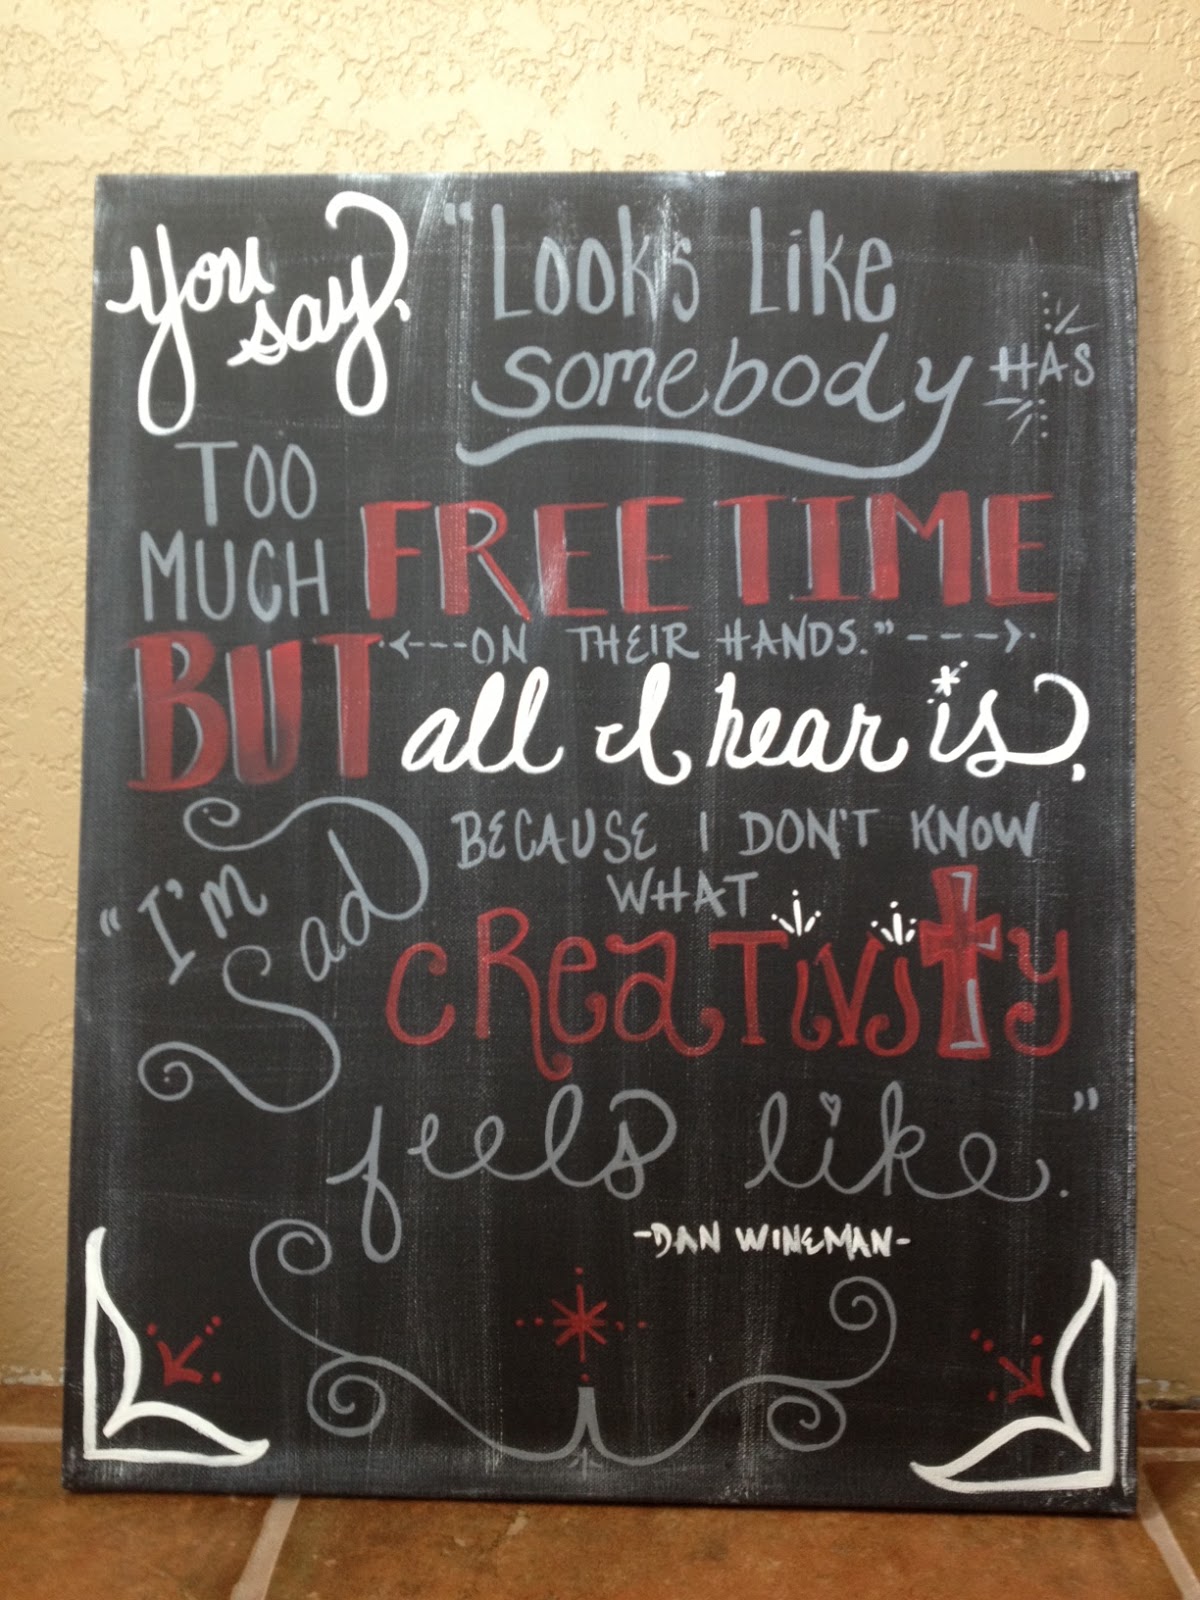 You say, "Looks Like
somebody HAS
TOO MUCH FREE TIME
ON THEIR HANDS."
BUT all I hear is,
"I'm sad BECAUSE I DON'T KNOW
WHAT
CReaTiviTy
feels like."
-DAN WINEMAN-